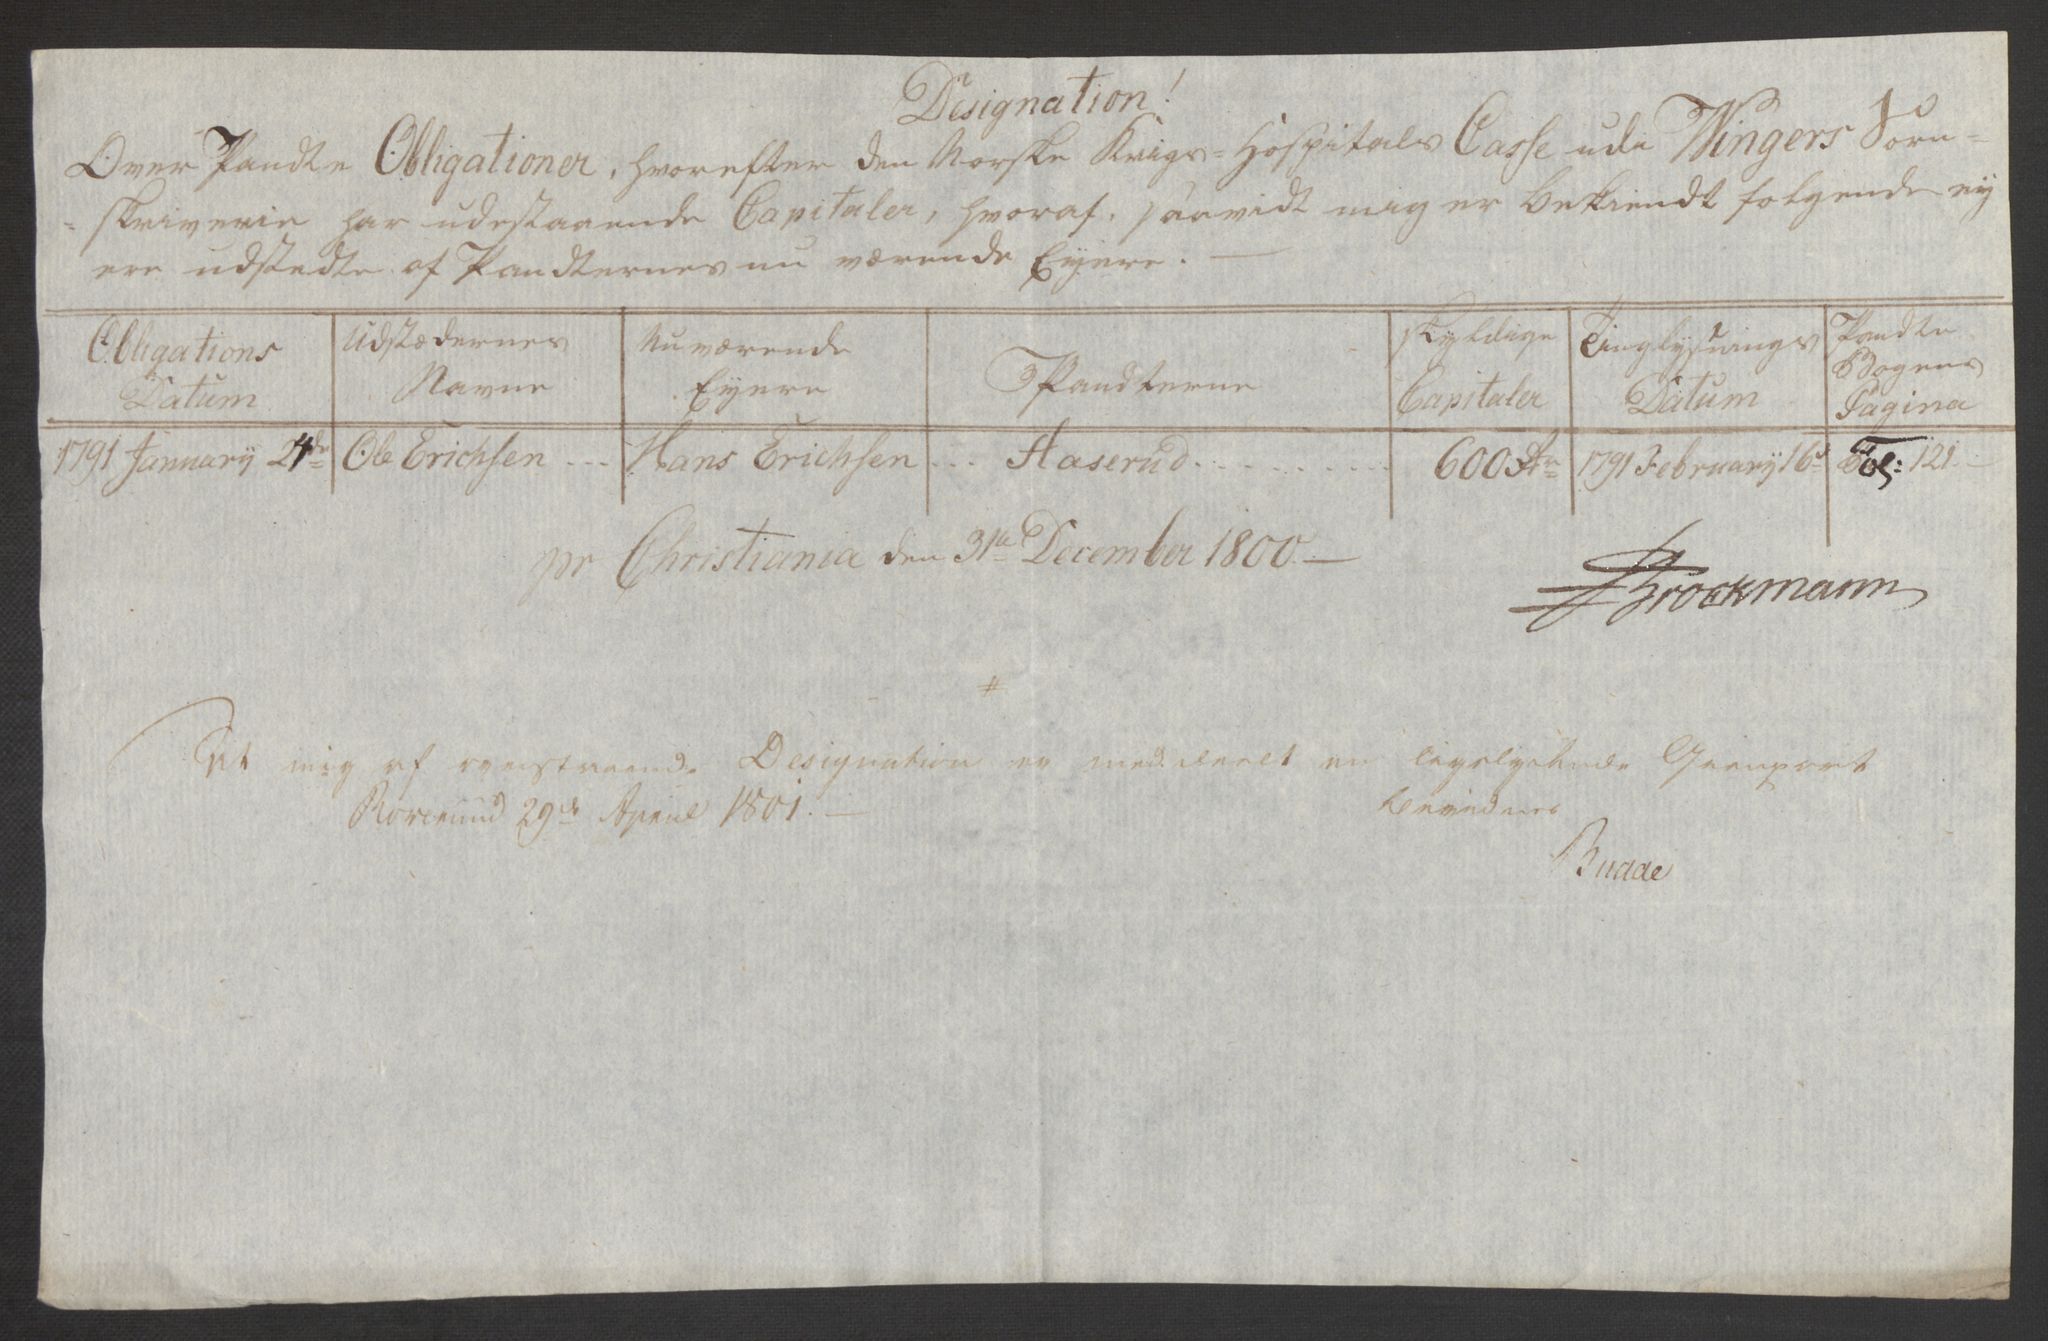 Designation!
Over Pandte Obligationer, hvorefter den Norske Krigs-Hospitals Casse udi Wingers Sorn-
-skriverie har udestaaende Capitaler, hvoraf, saavidt mig er bekiendt følgende ey
ere udstedte af Pandternes nu værende Eyere. —
Obligations Datum | Udstædernes Navne | Nuværende Eyere | Pandterne | Skyldige Capitaler | Tinglysnings Datum | Pandte Bogens Pagina
1791 January 24de | Ole Erichsen ... | Hans Erichsen ... | Haserud . . . . . . . . . . | 600 | 1791 February 16d | Fol: 121. —
pr Christiania den 31te December 1800. —
Brockmann
#
At mig af ovenstaaende Designation er meddeelt en ligelydende Gienpart
29de April 1801. — bevidnes
Buaae